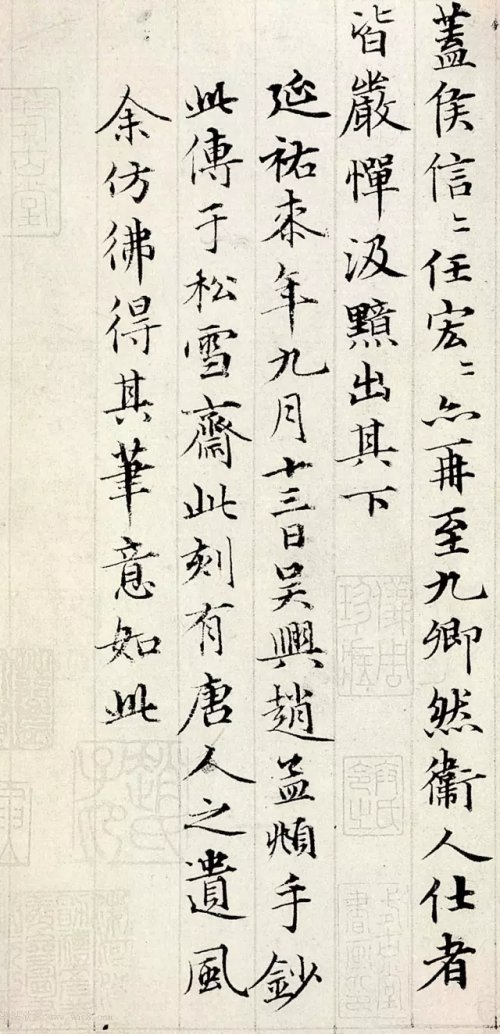 蓋侯信〻任宏〻亦再至九卿然衞人仕者
皆嚴憚汲黯出其下
延祐柒年九月十三日吴興趙孟頫手鈔
此傳于松雪齋此刻有唐人之遺風
余仿彿得其筆意如此